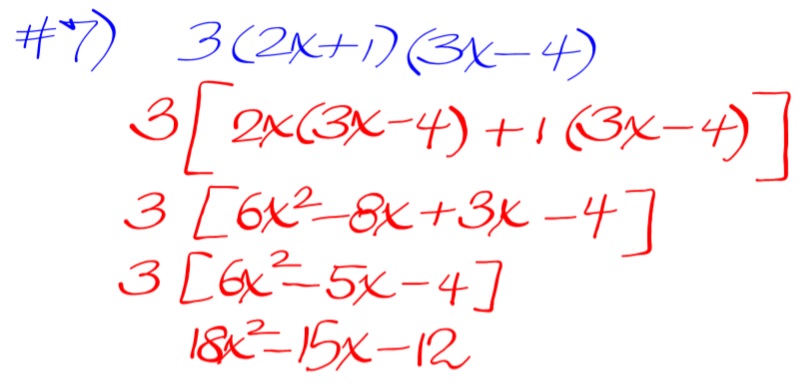 #7) 3(2x+1)(3x-4)
3[2x(3x-4)+1(3x-4)]
3[6x²-8x+3x-4]
3[6x²-5x-4]
18x²-15x-12